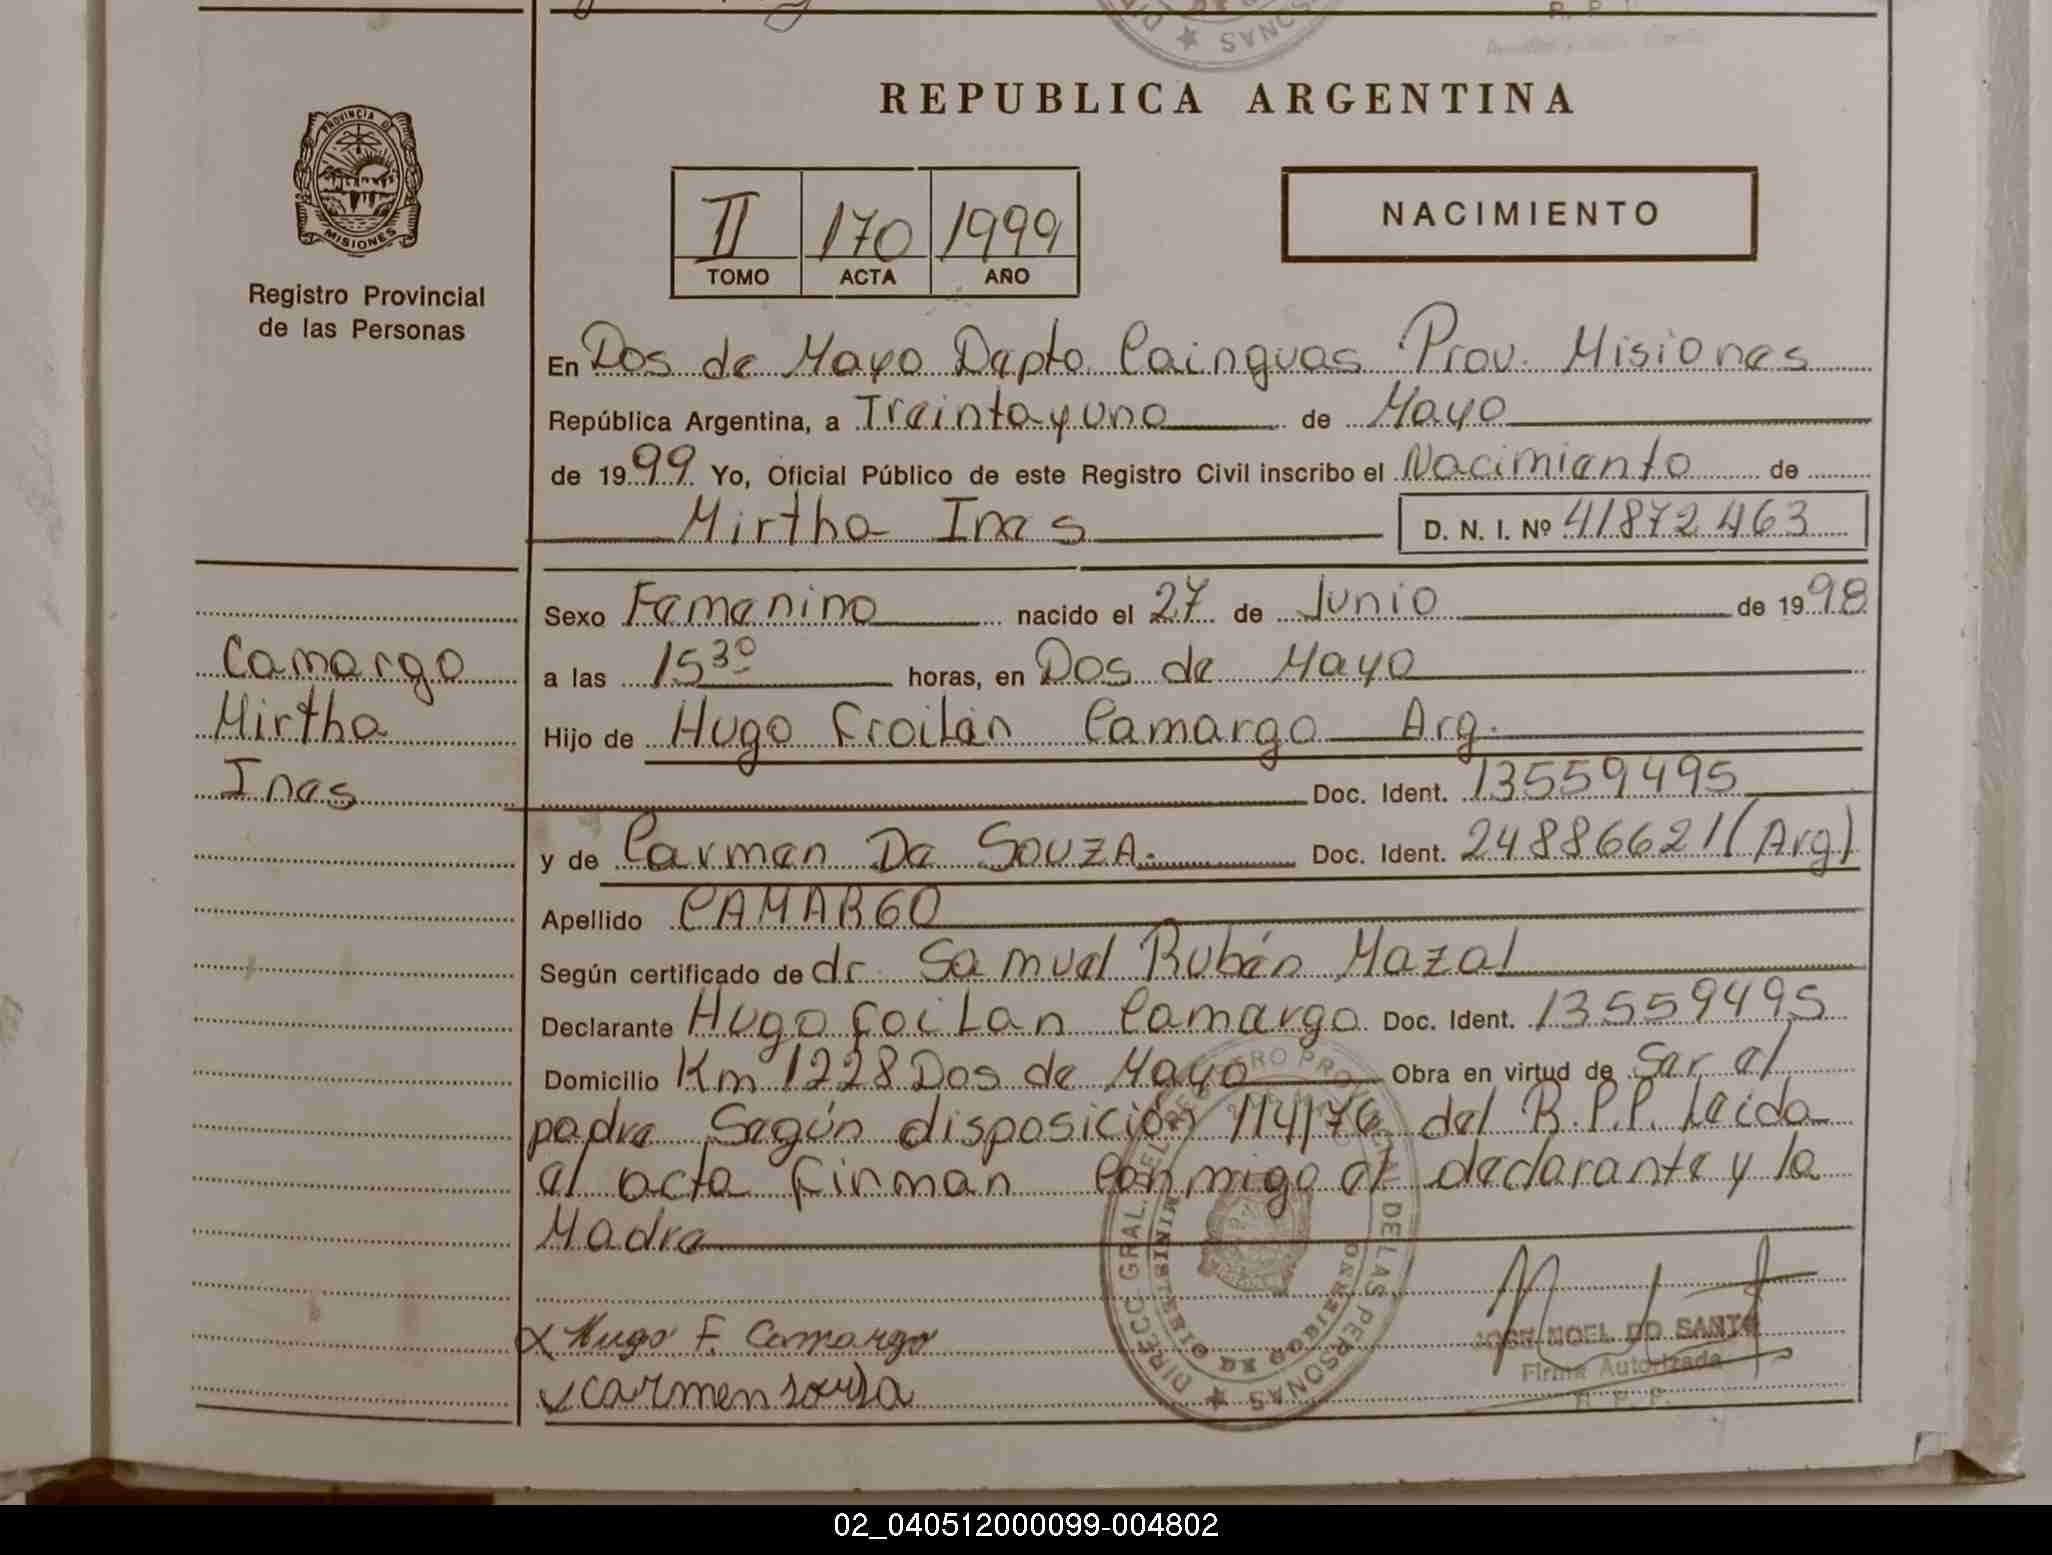 REPUBLICA ARGENTINA
PROVINCIA D
MISIONES
Registro Provincial
de las Personas
II 170 1999
TOMO ACTA AÑO
NACIMIENTO
En Dos de Mayo Depto Cainguas Prov. Misiones
República Argentina, a Treinta y uno de Mayo
de 1999 Yo, Oficial Público de este Registro Civil inscribo el Nacimiento de
Mirtha Ines D. N. I. Nº 41872463
Sexo Femenino nacido el 27 de Junio de 1998
a las 15 30 horas, en Dos de Mayo
Hijo de Hugo Froilán Camargo Arg.
Doc. Ident. 13559495
y de Carmen De Souza. Doc. Ident. 24886621 (Arg)
Apellido CAMARGO
Según certificado de dr. Samuel Rubén Mazal
Declarante Hugo Foilan Camargo Doc. Ident. 13559495
Domicilio Km 1228 Dos de Mayo Obra en virtud de Ser el
padre Según disposición 114/76 del R.P.P. Leida
el acta firman Conmigo el declarante y la
Madre
Camargo
Mirtha
Ines
x Hugo F. Camargo
carmen souza
JOSE NOEL DO SANTO
Firma Autorizada
R. P. P.
DIRECC. GRAL. DEL REGISTRO PROVINCIAL DE LAS PERSONAS
MINISTERIO DE GOBIERNO
02_040512000099-004802